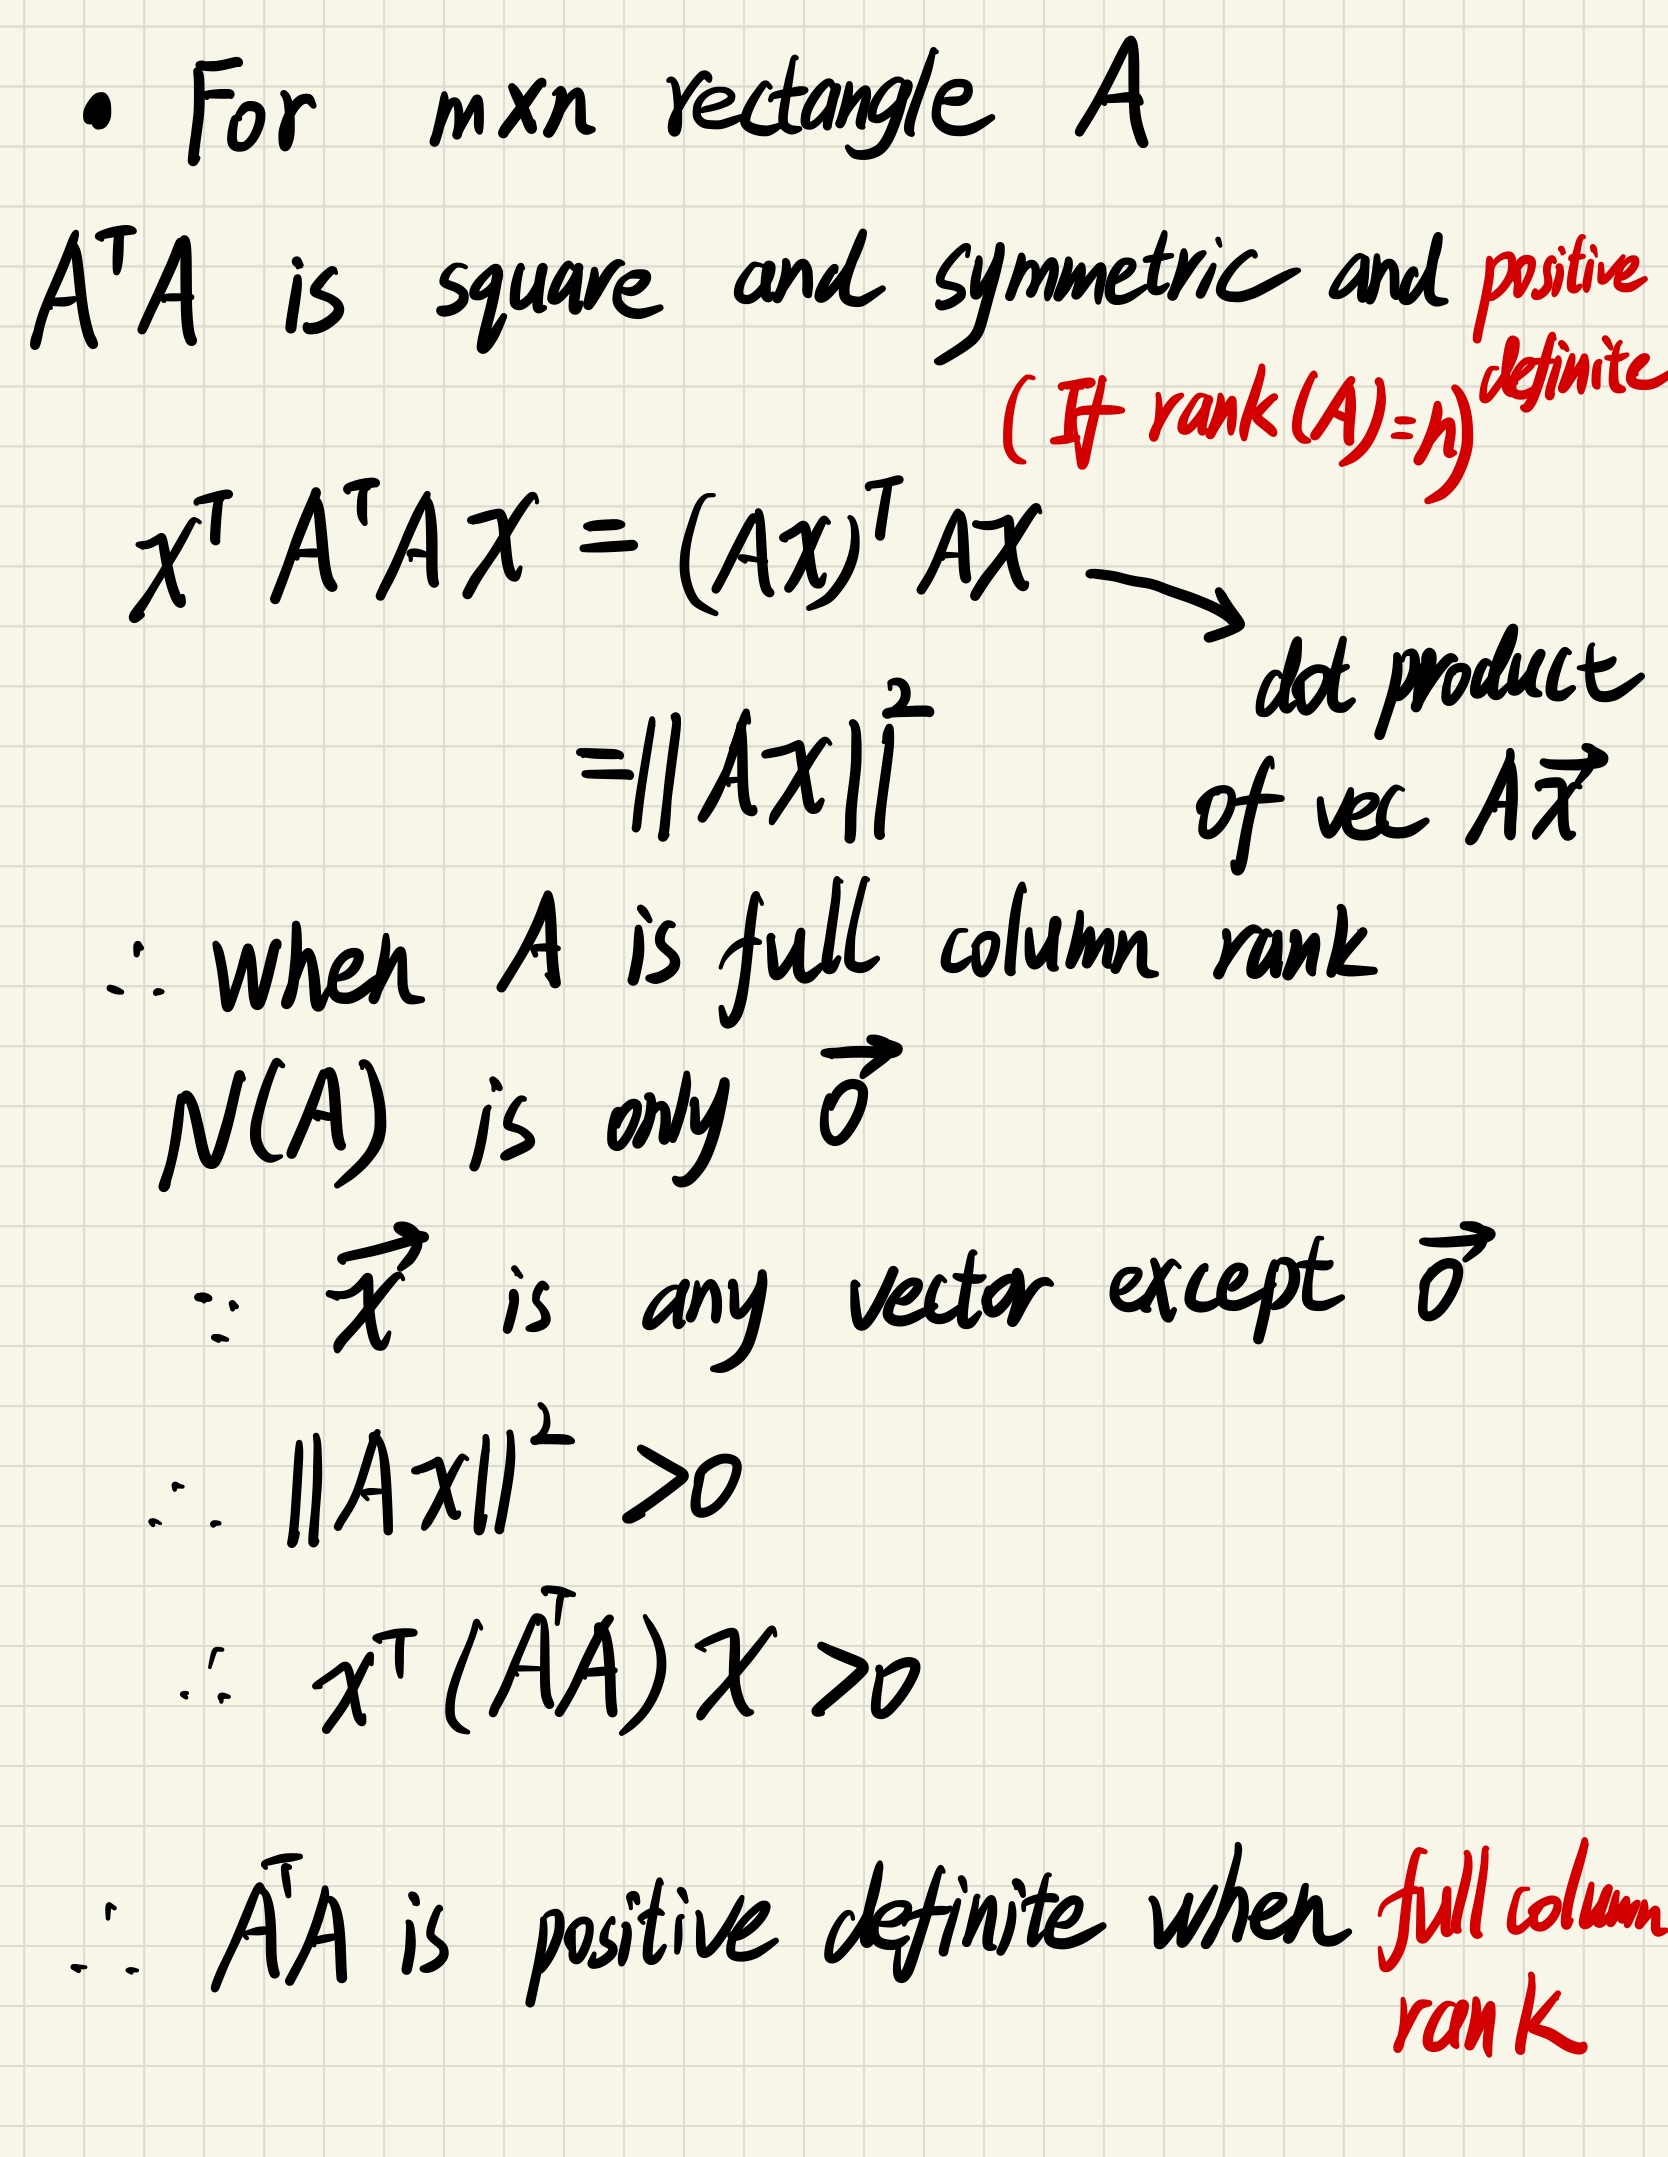 • For m×n rectangle A
AᵀA is square and symmetric and positive
definite
(If rank(A)=n)
xᵀAᵀAx = (Ax)ᵀAx
→ dot product
of vec Ax⃗
=||Ax||²
∴ when A is full column rank
N(A) is only 0⃗
∵ x⃗ is any vector except 0⃗
∴ ||Ax||² >0
∴ xᵀ(AᵀA)x >0
∴ AᵀA is positive definite when full column
rank